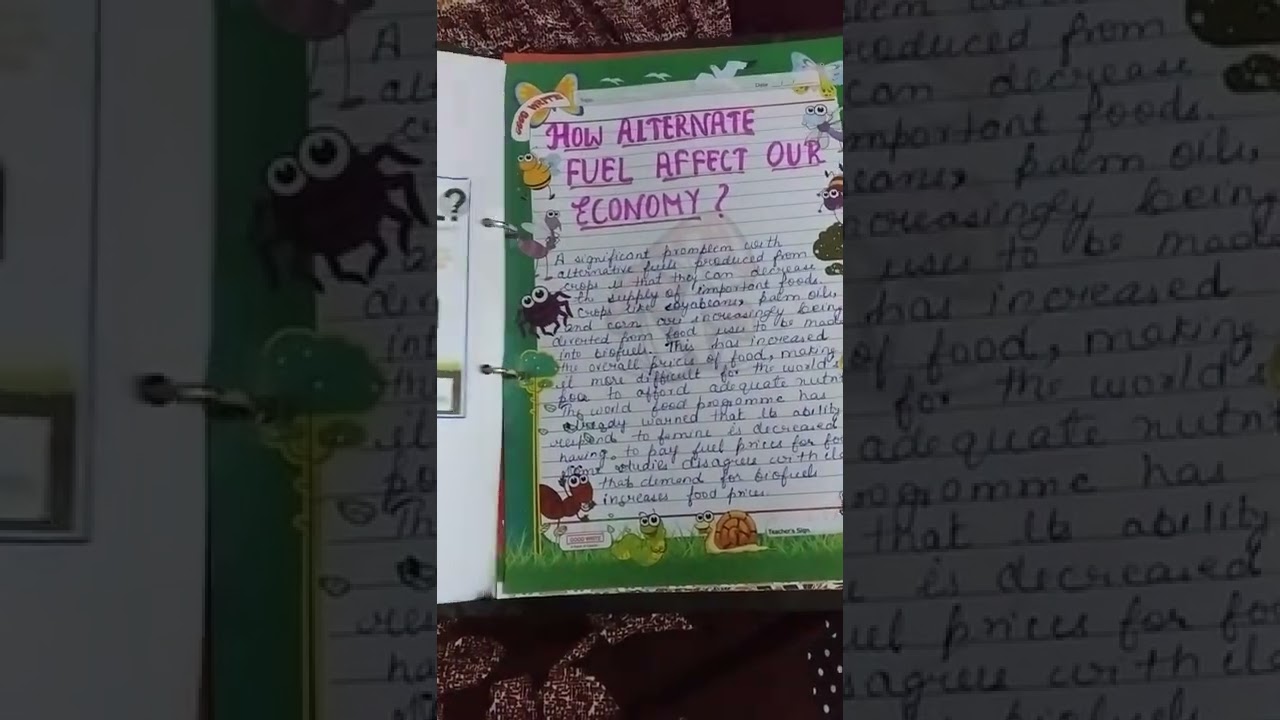 GOOD WRITE
Date
HOW ALTERNATE
FUEL AFFECT OUR
ECONOMY ?
A significant promplem with
alternative fuels produced from
crops is that they can decrease
the supply of important foods.
crops like soyabeans, palm oils,
and corn are increasingly being
diverted from food uses to be made
into biofuels. This has increased
the overall prices of food, making
it more difficult for the world's
poor to afford adequate nutri
The world food programme has
already warned that its ability
respond to famine is decreased
having to pay fuel prices for foo
some studies disagree with
that demand for biofuels
increases food prices.
GOOD WRITE
Teacher's Sign
?